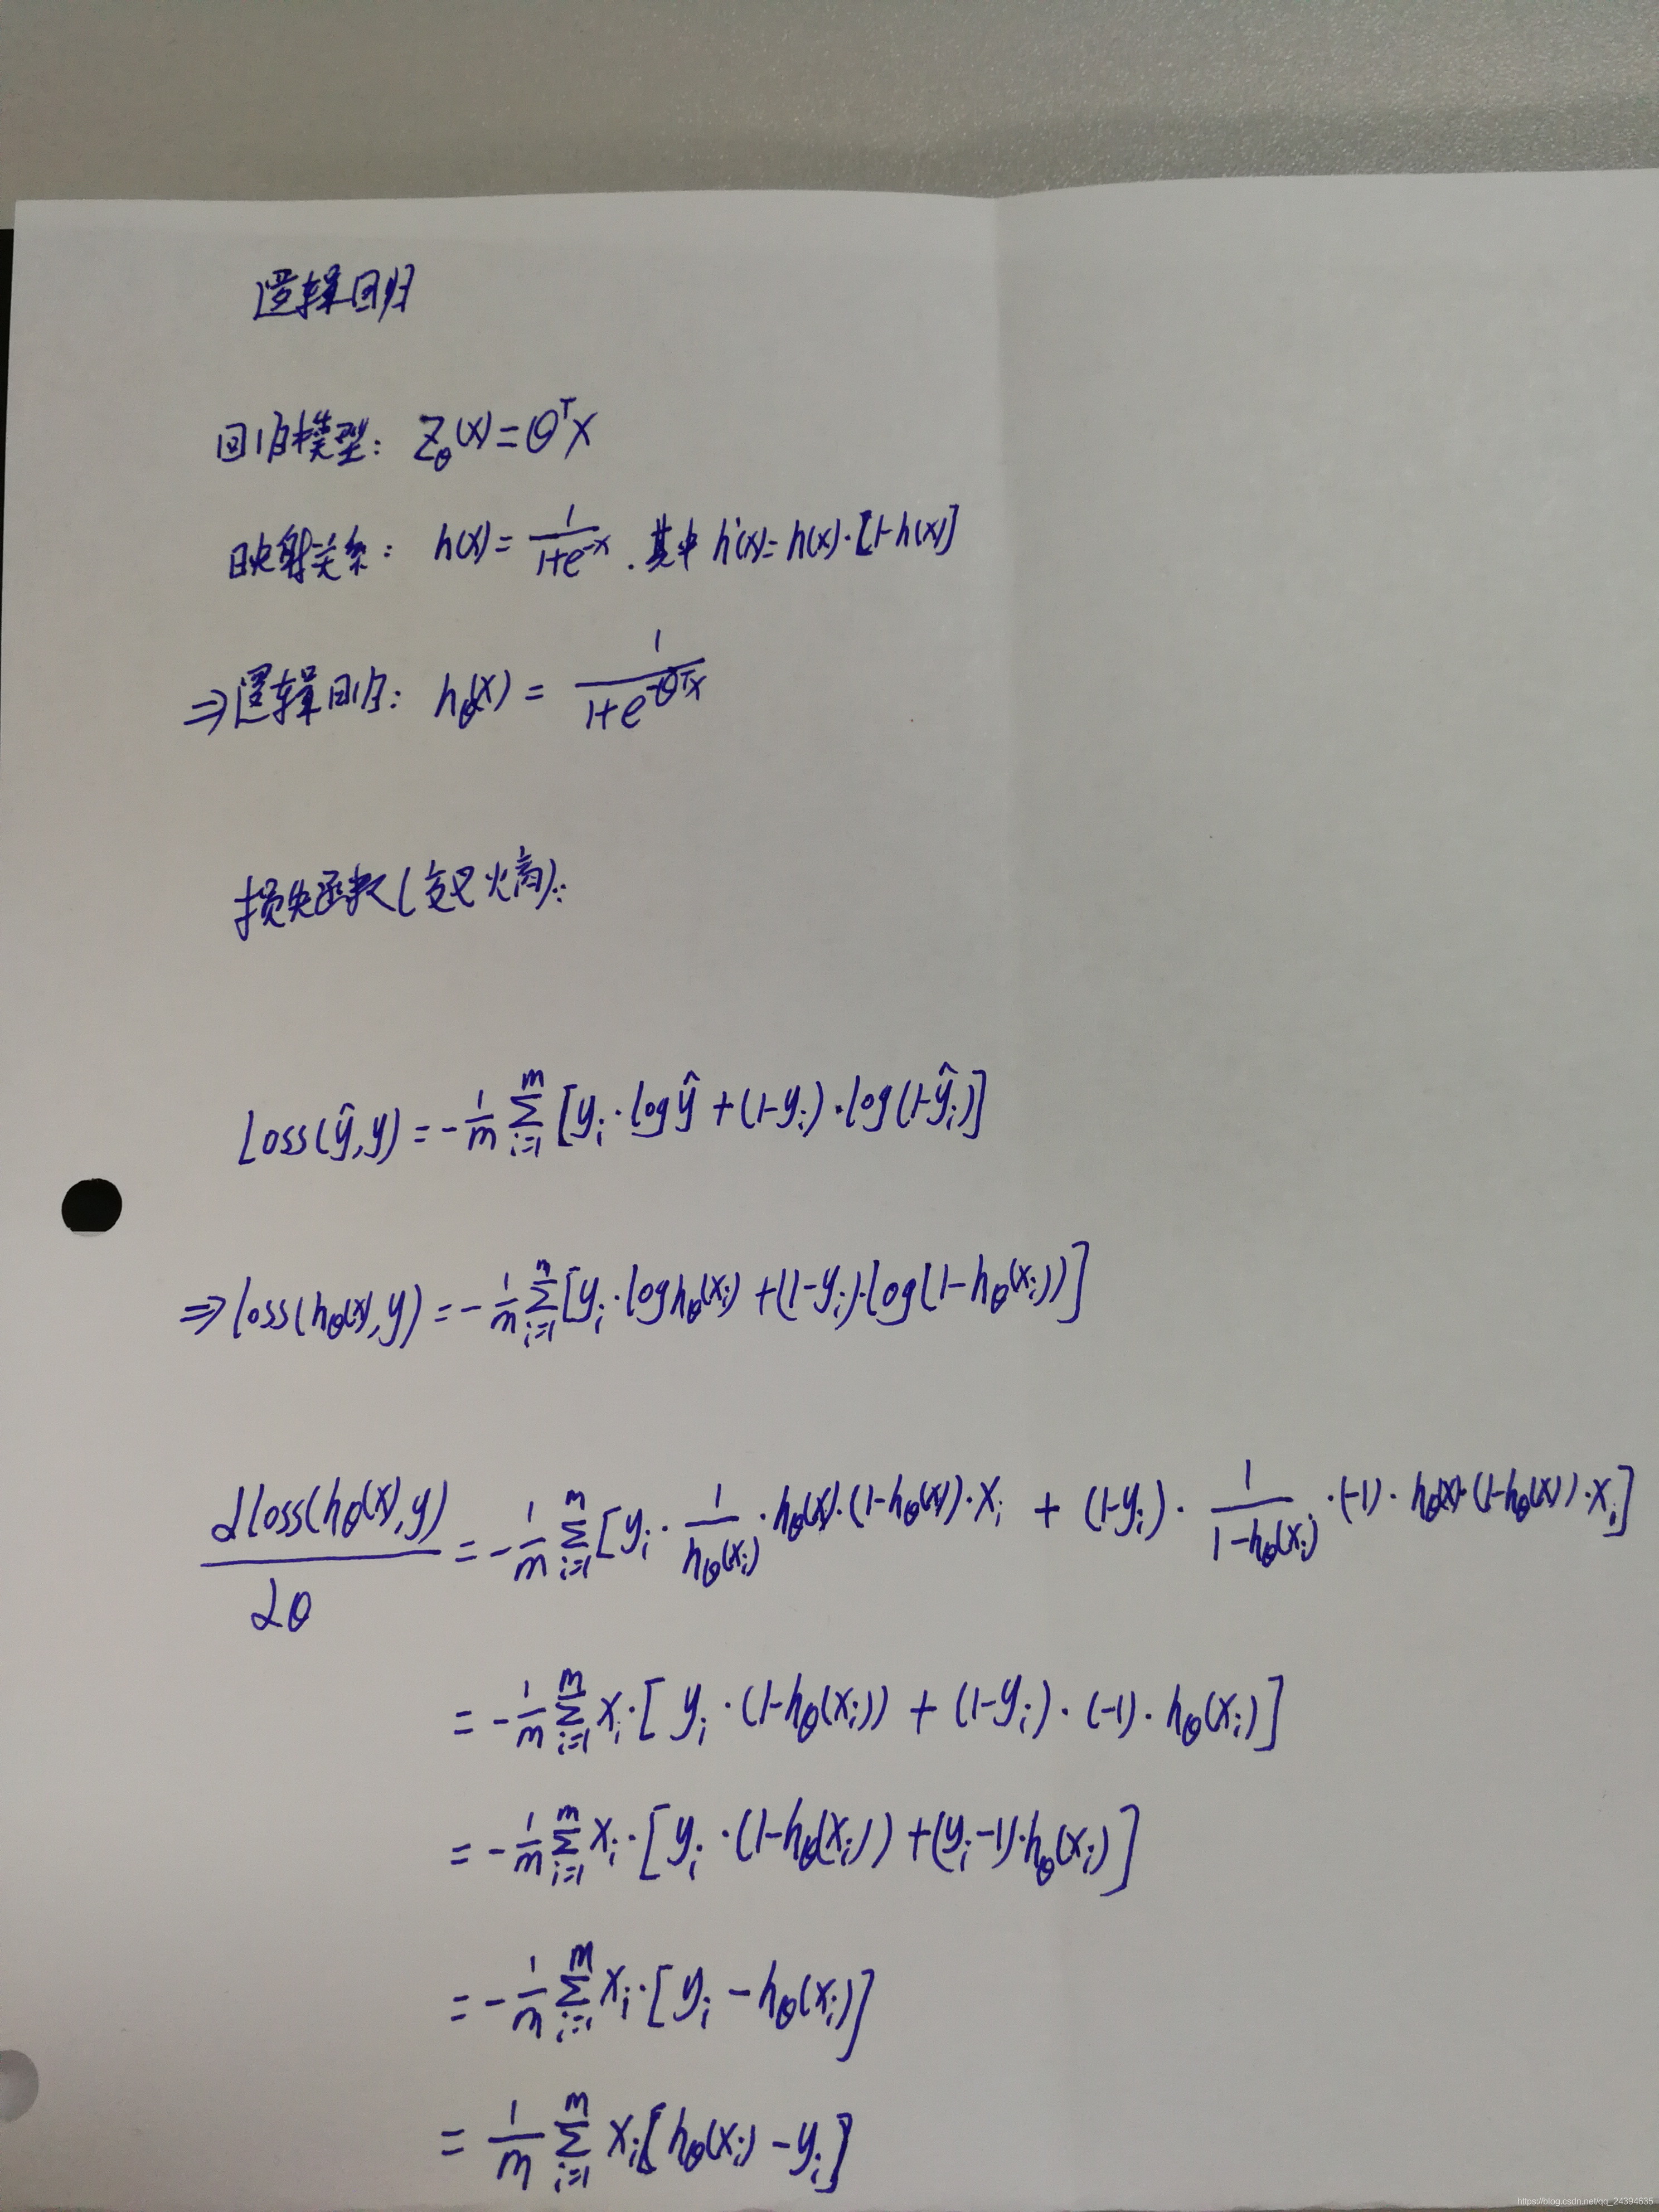 逻辑回归
回归模型: Z_θ(x)=θ^T x
映射关系: h(x)=1/(1+e^{-x}). 其中 h'(x)=h(x)·[1-h(x)]
⇒逻辑回归: h_θ(x) = 1/(1+e^{-θ^T x})
损失函数(交叉熵):
Loss(ŷ,y) = -1/m Σ_{i=1}^{m} [y_i·log ŷ +(1-y_i)·log(1-ŷ_i)]
⇒loss(h_θ(x),y) = -1/m Σ_{i=1}^{m} [y_i·log h_θ(x_i) +(1-y_i)·log(1-h_θ(x_i))]
∂loss(h_θ(x),y)/∂θ = -1/m Σ_{i=1}^{m} [y_i · 1/h_θ(x_i) · h_θ(x)·(1-h_θ(x))·x_i + (1-y_i) · 1/(1-h_θ(x_i)) ·(-1)· h_θ(x)·(1-h_θ(x))·x_i]
= -1/m Σ_{i=1}^{m} x_i·[y_i·(1-h_θ(x_i)) + (1-y_i)·(-1)·h_θ(x_i)]
= -1/m Σ_{i=1}^{m} x_i·[y_i·(1-h_θ(x_i)) +(y_i-1)·h_θ(x_i)]
= -1/m Σ_{i=1}^{m} x_i·[y_i - h_θ(x_i)]
= 1/m Σ_{i=1}^{m} x_i[h_θ(x_i) - y_i]
https://blog.csdn.net/qq_24394635